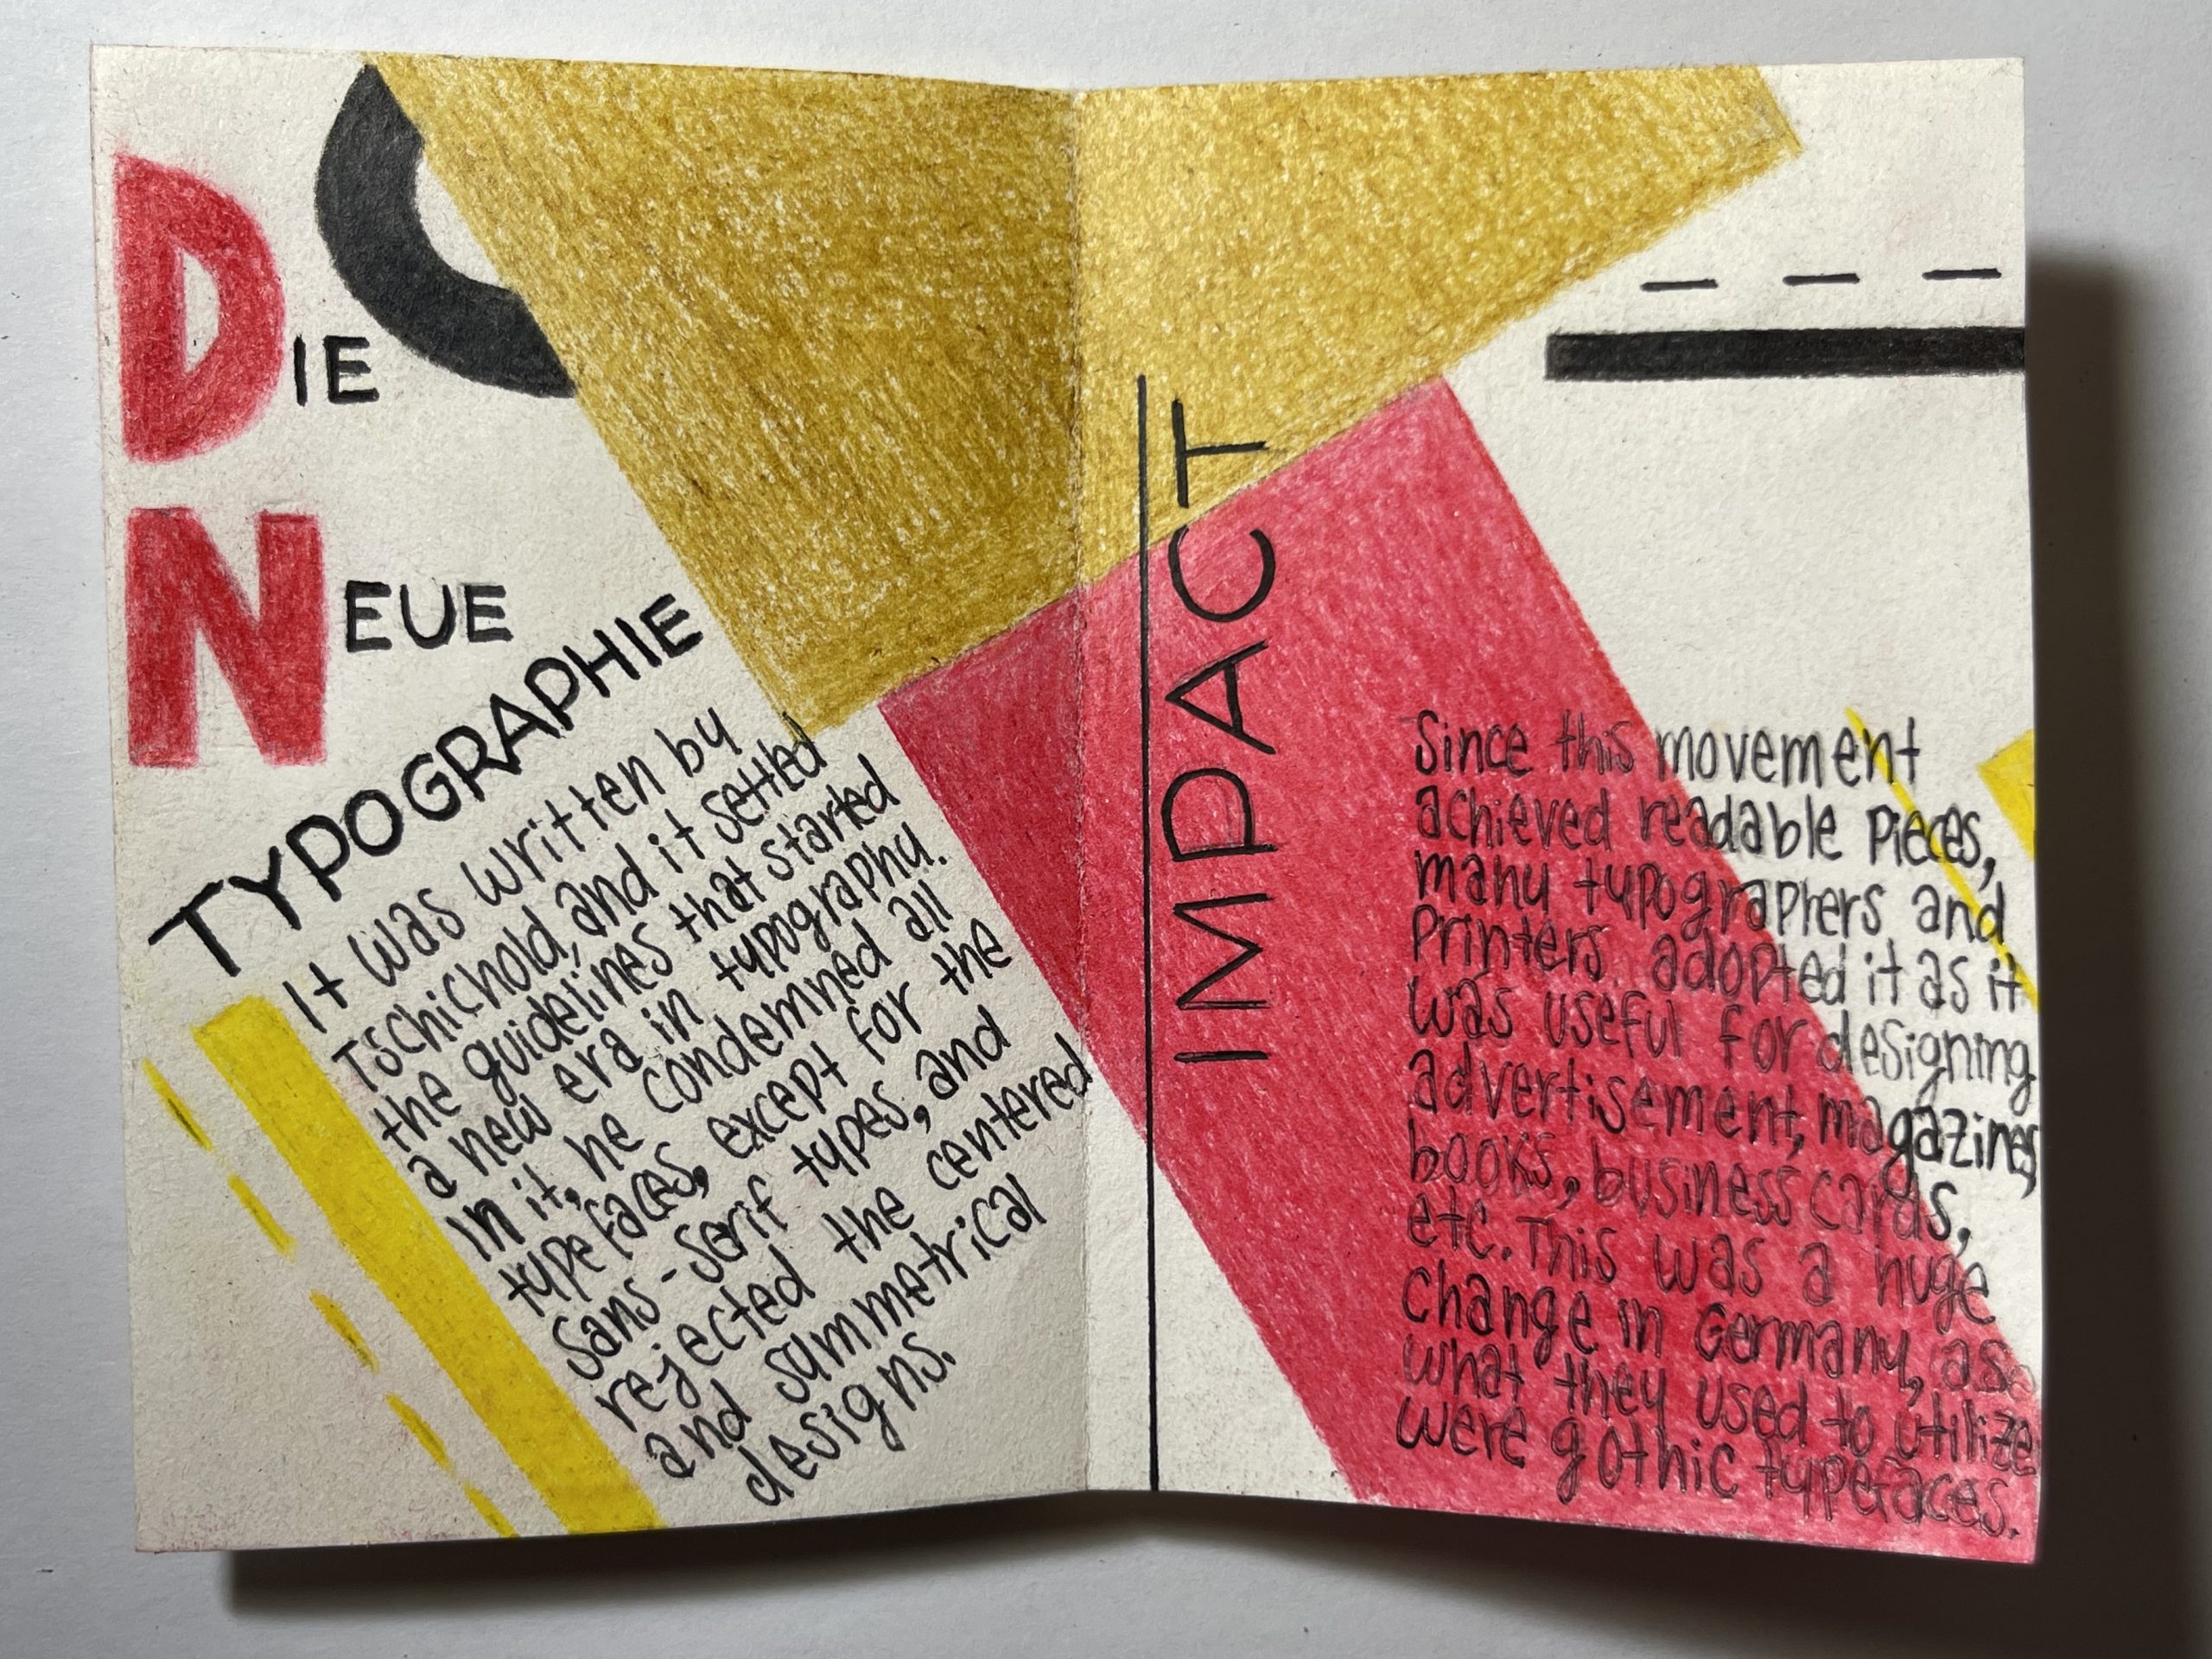 DIE
NEUE
TYPOGRAPHIE
It was written by
Tschichold, and it setted
the guidelines that started
a new era in typography.
In it, he condemned all
typefaces, except for the
sans-serif types, and
rejected the centered
and symmetrical
designs.
IMPACT
Since this movement
achieved readable pieces,
many typographers and
printers adopted it as it
was useful for designing
advertisement, magazines,
books, business cards,
etc. This was a huge
change in Germany, as
what they used to utilize
were gothic typefaces.